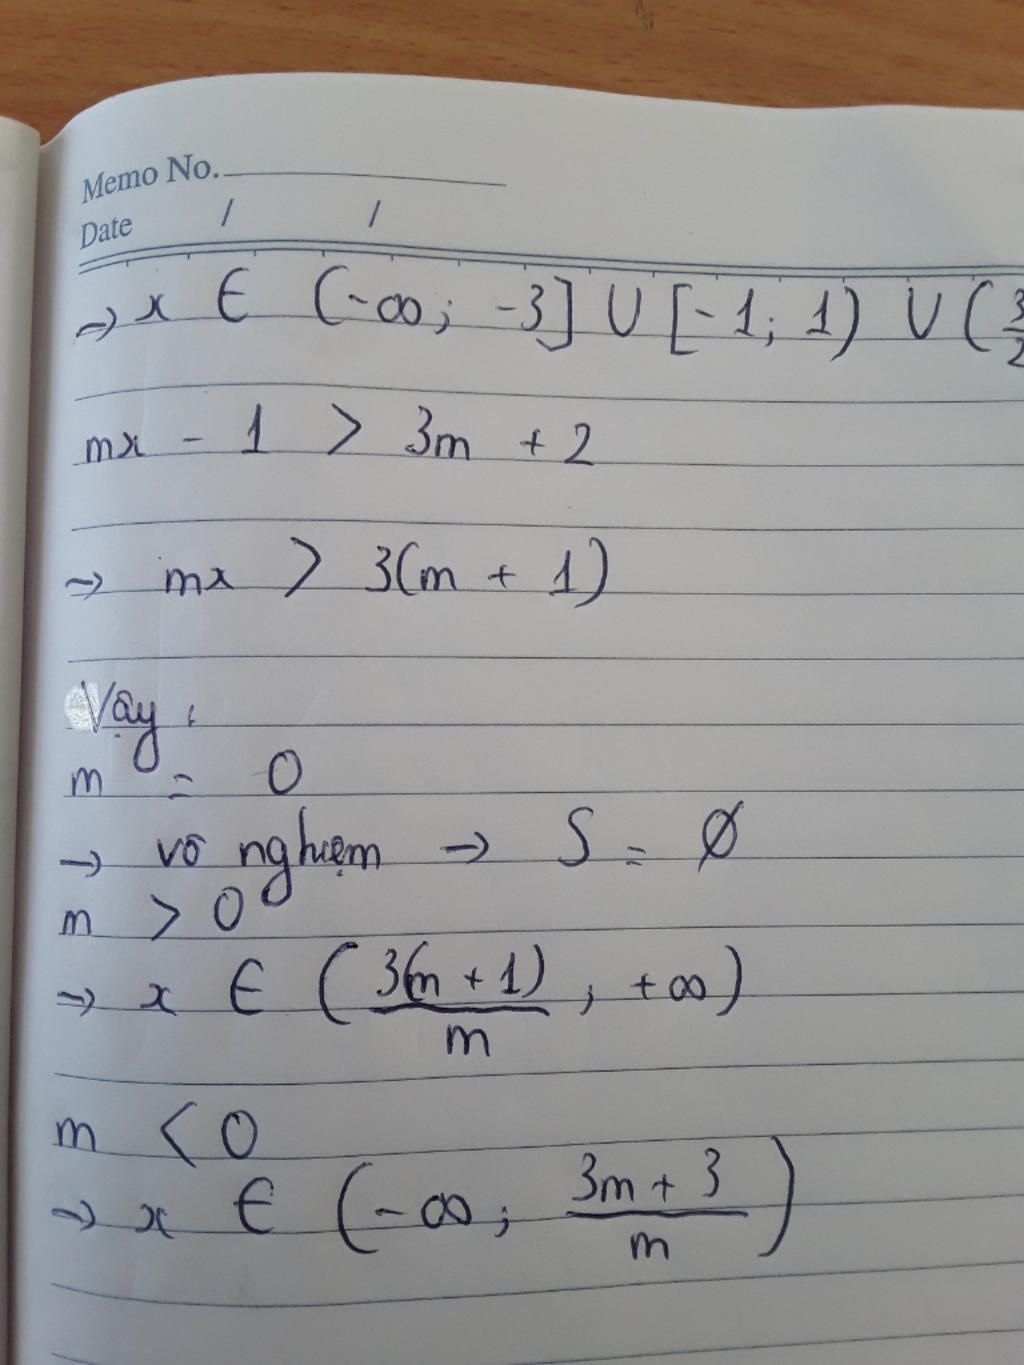 Memo No.
Date / /
⇒ x ∈ (-∞; -3] ∪ [-1; 1) ∪ (3/2
mx - 1 > 3m + 2
⇒ mx > 3(m + 1)
Vậy :
m = 0
→ vô nghiệm → S = ∅
m > 0
⇒ x ∈ (3(m + 1)/m ; +∞)
m < 0
⇒ x ∈ (-∞; 3m + 3/m)